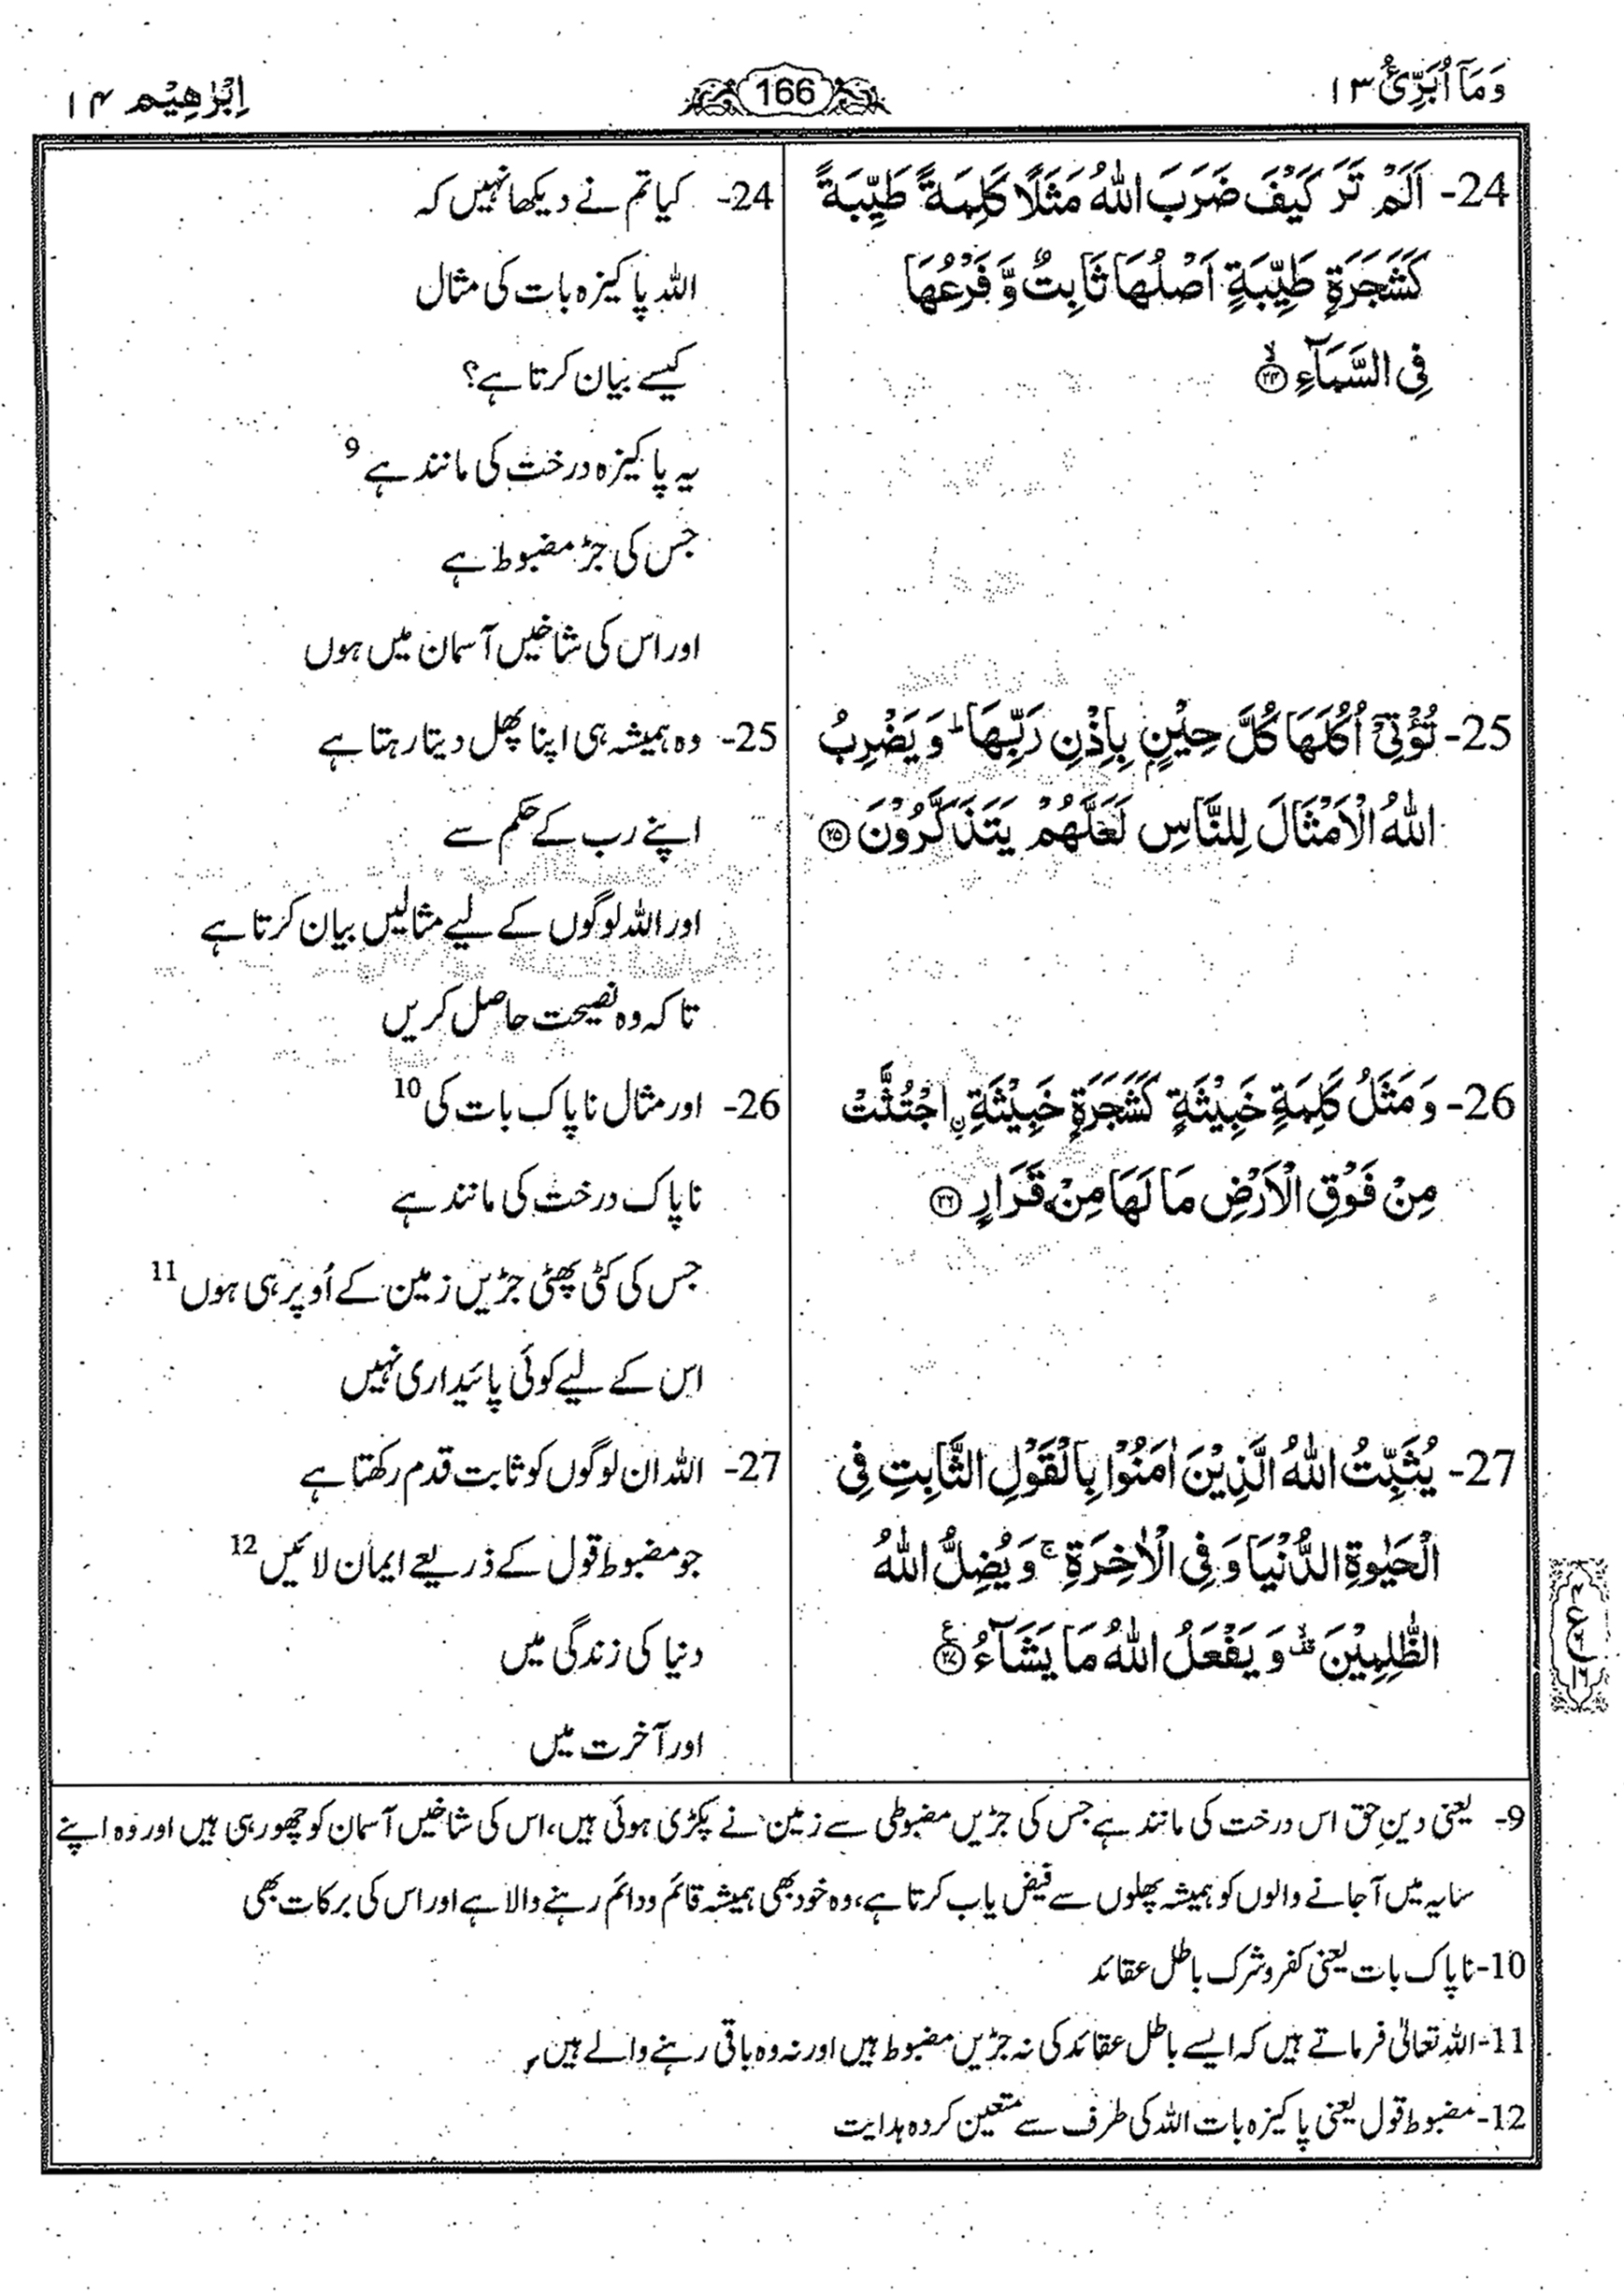 وَمَآ اُبَرِّئُ ١٣
166
اِبْرٰهِيْم ١٤
24- اَلَمْ تَرَ كَيْفَ ضَرَبَ اللّٰهُ مَثَلًا كَلِمَةً طَيِّبَةً
كَشَجَرَةٍ طَيِّبَةٍ اَصْلُهَا ثَابِتٌ وَّ فَرْعُهَا
فِى السَّمَآءِ ۙ﴿۲۴﴾
25- تُؤْتِىْٓ اُكُلَهَا كُلَّ حِيْنٍ بِاِذْنِ رَبِّهَا ؕ وَ يَضْرِبُ
اللّٰهُ الْاَمْثَالَ لِلنَّاسِ لَعَلَّهُمْ يَتَذَكَّرُوْنَ ﴿۲۵﴾
26- وَ مَثَلُ كَلِمَةٍ خَبِيْثَةٍ كَشَجَرَةٍ خَبِيْثَةِ ِ۟اجْتُثَّتْ
مِنْ فَوْقِ الْاَرْضِ مَا لَهَا مِنْ قَرَارٍ ﴿۲۶﴾
27- يُثَبِّتُ اللّٰهُ الَّذِيْنَ اٰمَنُوْا بِالْقَوْلِ الثَّابِتِ فِى
الْحَيٰوةِ الدُّنْيَا وَ فِى الْاٰخِرَةِ ۚ وَ يُضِلُّ اللّٰهُ
الظّٰلِمِيْنَ ۟ۙ وَ يَفْعَلُ اللّٰهُ مَا يَشَآءُ ﴿۲۷﴾
24- کیا تم نے دیکھا نہیں کہ
اللہ پاکیزہ بات کی مثال
کیسے بیان کرتا ہے؟
یہ پاکیزہ درخت کی مانند ہے 9
جس کی جڑ مضبوط ہے
اور اس کی شاخیں آسمان میں ہوں
25- وہ ہمیشہ ہی اپنا پھل دیتا رہتا ہے
اپنے رب کے حکم سے
اور اللہ لوگوں کے لیے مثالیں بیان کرتا ہے
تا کہ وہ نصیحت حاصل کریں
26- اور مثال ناپاک بات کی 10
ناپاک درخت کی مانند ہے
جس کی کٹی پھٹی جڑیں زمین کے اُوپر ہی ہوں 11
اس کے لیے کوئی پائیداری نہیں
27- اللہ ان لوگوں کو ثابت قدم رکھتا ہے
جو مضبوط قول کے ذریعے ایمان لائیں 12
دنیا کی زندگی میں
اور آخرت میں
9- یعنی دینِ حق اس درخت کی مانند ہے جس کی جڑیں مضبوطی سے زمین نے پکڑی ہوئی ہیں، اس کی شاخیں آسمان کو چھو رہی ہیں اور وہ اپنے
سایہ میں آجانے والوں کو ہمیشہ پھلوں سے فیض یاب کرتا ہے، وہ خود بھی ہمیشہ قائم و دائم رہنے والا ہے اور اس کی برکات بھی
10- ناپاک بات یعنی کفر و شرک باطل عقائد
11- اللہ تعالیٰ فرماتے ہیں کہ ایسے باطل عقائد کی نہ جڑیں مضبوط ہیں اور نہ وہ باقی رہنے والے ہیں
12- مضبوط قول یعنی پاکیزہ بات اللہ کی طرف سے متعین کردہ ہدایت